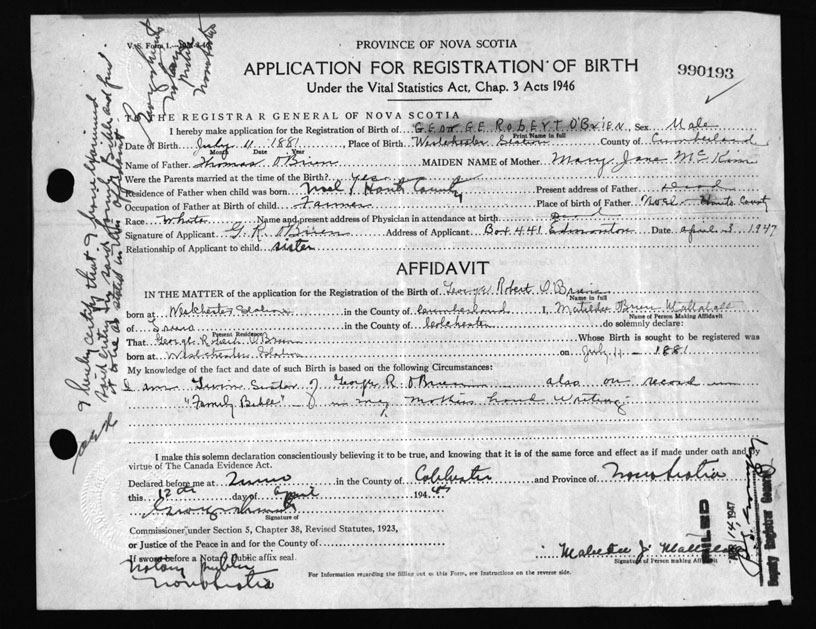 V. S. Form 1.
PROVINCE OF NOVA SCOTIA
APPLICATION FOR REGISTRATION OF BIRTH
990193
Under the Vital Statistics Act, Chap. 3 Acts 1946
TO THE REGISTRAR GENERAL OF NOVA SCOTIA
I hereby make application for the Registration of Birth of GEORGE ROBERT O'BRIEN, Sex Male
Print Name in full
Date of Birth July 11 1881, Place of Birth Westchester Station County of Cumberland
Month Date Year
Name of Father Thomas O'Brien MAIDEN NAME of Mother Mary Jane McKim
Were the Parents married at the time of the Birth? yes
Residence of Father when child was born Noel, Hants County Present address of Father dead
Occupation of Father at Birth of child Farmer Place of birth of Father Noel Hants County
Race White Name and present address of Physician in attendance at birth Dead
Signature of Applicant G. R. O'Brien Address of Applicant Box 441 Edmonton Date april 3 1947
Relationship of Applicant to child sister
AFFIDAVIT
IN THE MATTER of the application for the Registration of the Birth of George Robert O'Brien
Name in full
born at Westchester Station in the County of Cumberland I, Matilda O'Brien
Name of Person Making Affidavit
of Truro in the County of Colchester do solemnly declare:
Present Residence
That George Robert O'Brien Whose Birth is sought to be registered was
born at Westchester Station on July 11 - 1881
My knowledge of the fact and date of such Birth is based on the following Circumstances:
I am Twin Sister of George R. O'Brien - also on record in
"Family Bible" - in my mothers hand writing.
I make this solemn declaration conscientiously believing it to be true, and knowing that it is of the same force and effect as if made under oath and by
virtue of The Canada Evidence Act.
Declared before me at Truro in the County of Colchester and Province of Nova Scotia
this 12th day of April 1947
Signature of
Commissioner under Section 5, Chapter 38, Revised Statutes, 1923,
or Justice of the Peace in and for the County of
If sworn before a Notary Public affix seal.
Matilda J.
Signature of Person making Affidavit
Notary Public
Nova Scotia
For Information regarding the filling out of this Form, see Instructions on the reverse side.
I hereby certify that I have examined
said entry in said family Bible and find
it to be as stated in
Notary Public
Nova Scotia
FILED
1947
Deputy Registrar General